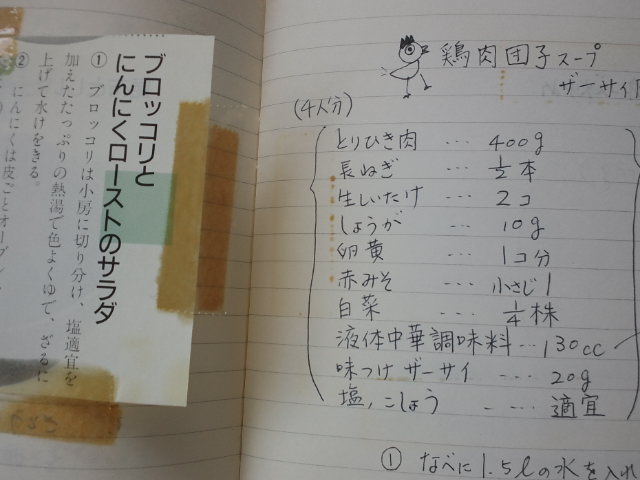 ブロッコリと
にんにくローストのサラダ
① ブロッコリは小房に切り分け、塩適宜を
加えたたっぷりの熱湯で色よくゆで、ざるに
上げて水けをきる。
② にんにくは皮ごとオーブン
鶏肉団子スープ
ザーサイ
(4人分)
とりひき肉 … 400g
長ねぎ … 1/2本
生しいたけ … 2コ
しょうが … 10g
卵黄 … 1コ分
赤みそ … 小さじ1
白菜 … 1/4株
液体中華調味料 … 130cc
味つけザーサイ … 20g
塩,こしょう … 適宜
① なべに1.5lの水を入れ